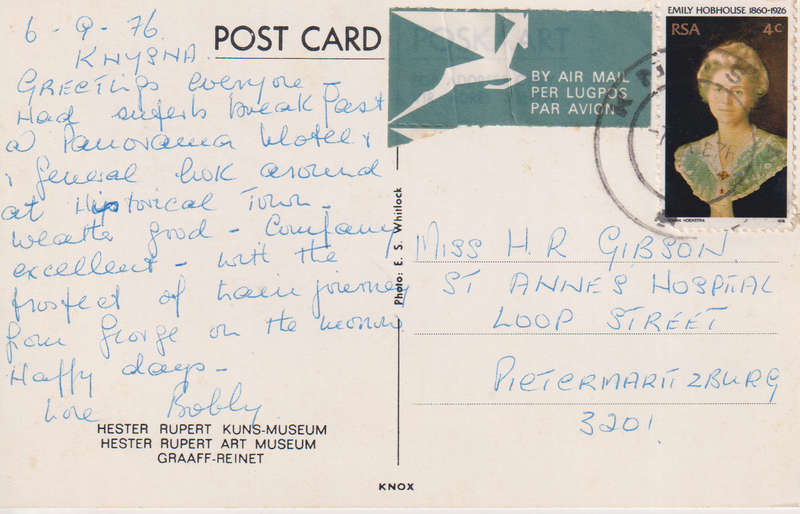 6-9-76
KNYSNA
POST CARD
Greetings everyone -
Had superb breakfast
at Panorama Hotel &
general look around
at Historical Town -
Weather good - Company
excellent - with the
prospect of train journey
from George on the
Happy days -
Love Bobby
HESTER RUPERT KUNS-MUSEUM
HESTER RUPERT ART MUSEUM
GRAAFF-REINET
Photo: E. S. Whitlock
KNOX
BY AIR MAIL
PER LUGPOS
PAR AVION
EMILY HOBHOUSE 1860-1926
RSA 4c
MISS H.R GIBSON
ST ANNES HOSPITAL
LOOP STREET
PIETERMARITZBURG
3201.